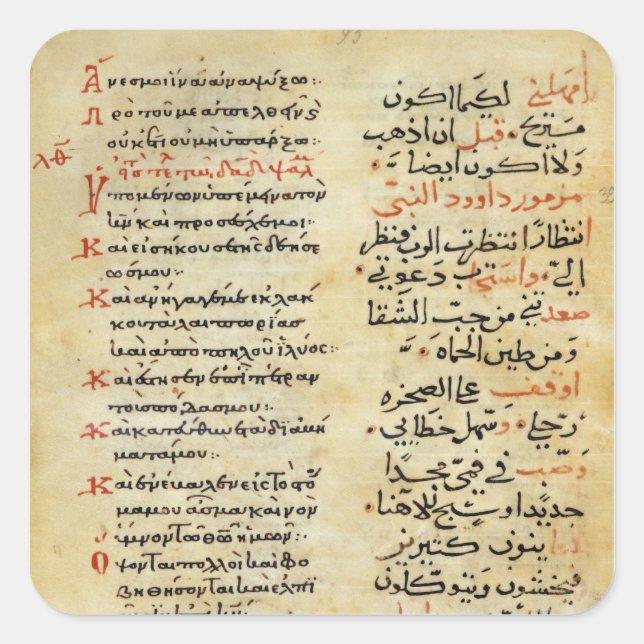 93
Ἄνες μοι ἵνα ἀναψύξω:·
Πρὸ τοῦ με ἀπελθεῖν ϗ
οὐκέτι οὐ μὴ ὑπάρξω:·
λθ
Ὑπομένων ὑπέμεινα τὸν
κν καὶ προσέσχε μοι
Καὶ εἰσήκουσε τῆς δεήσε
ώς μου:·
Καὶ ἀνήγαγέ με ἐκ λάκ
κου ταλαιπωρίας
καὶ ἀπὸ πηλοῦ ἰλύος:·
Καὶ ἔστησεν ἐπὶ πέτραν
τοὺς πόδας μου:·
Καὶ κατεύθυνε τὰ διαβή
ματά μου:·
Καὶ ἐνέβαλεν εἰς τὸ στό
μα μου ᾆσμα καινὸν
ὕμνον τῷ θῶ ἡμῶν:·
Ὄψονται πολλοὶ καὶ φο
βηθήσονται καὶ ἐλπι
امهلني لكيما اكون
مستريح قبل ان اذهب
ولا اكون ايضا
مزمور داوود النبي
انتظارًا انتظرت الرب فنظر
اليّ واستجاب دعوتي
صعدتني من جبّ الشقا
ومن طين الحماه
اوقف على الصخره
رجلي وسهل خطاي
وصب في فمي مجدًا
جديدًا وتسبيح للاهنا
كتيرين
فيخشون ويتوكلون